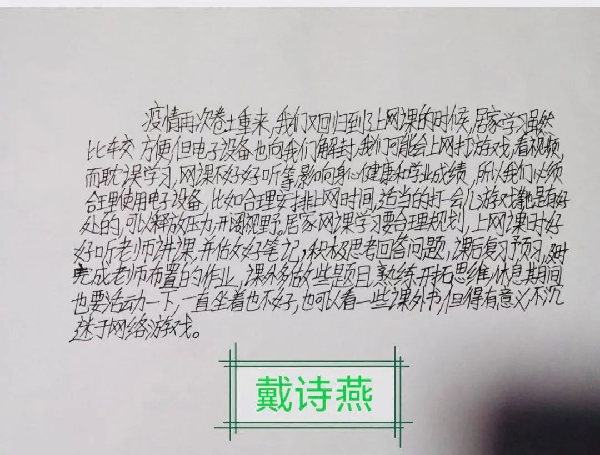 疫情再次卷土重来,我们又回归到了上网课的时候,居家学习虽然
比较方便但电子设备也向我们解封,我们可能会上网打游戏,看视频,
而耽误学习,网课不好好听等影响身心健康和学业成绩,所以我们必须
合理使用电子设备,比如合理安排上网时间,适当的打会儿游戏都是有好
处的,可以释放压力,开阔视野,居家网课学习要合理规划,上网课时好
好听老师讲课,并做好笔记,积极思考回答问题,课后复习预习,及时
完成老师布置的作业,课外多做些题目,熟练开拓思维,休息期间
也要活动一下,一直坐着也不好,也可以看一些课外书,但得有意义,不沉
迷于网络游戏。
戴诗燕